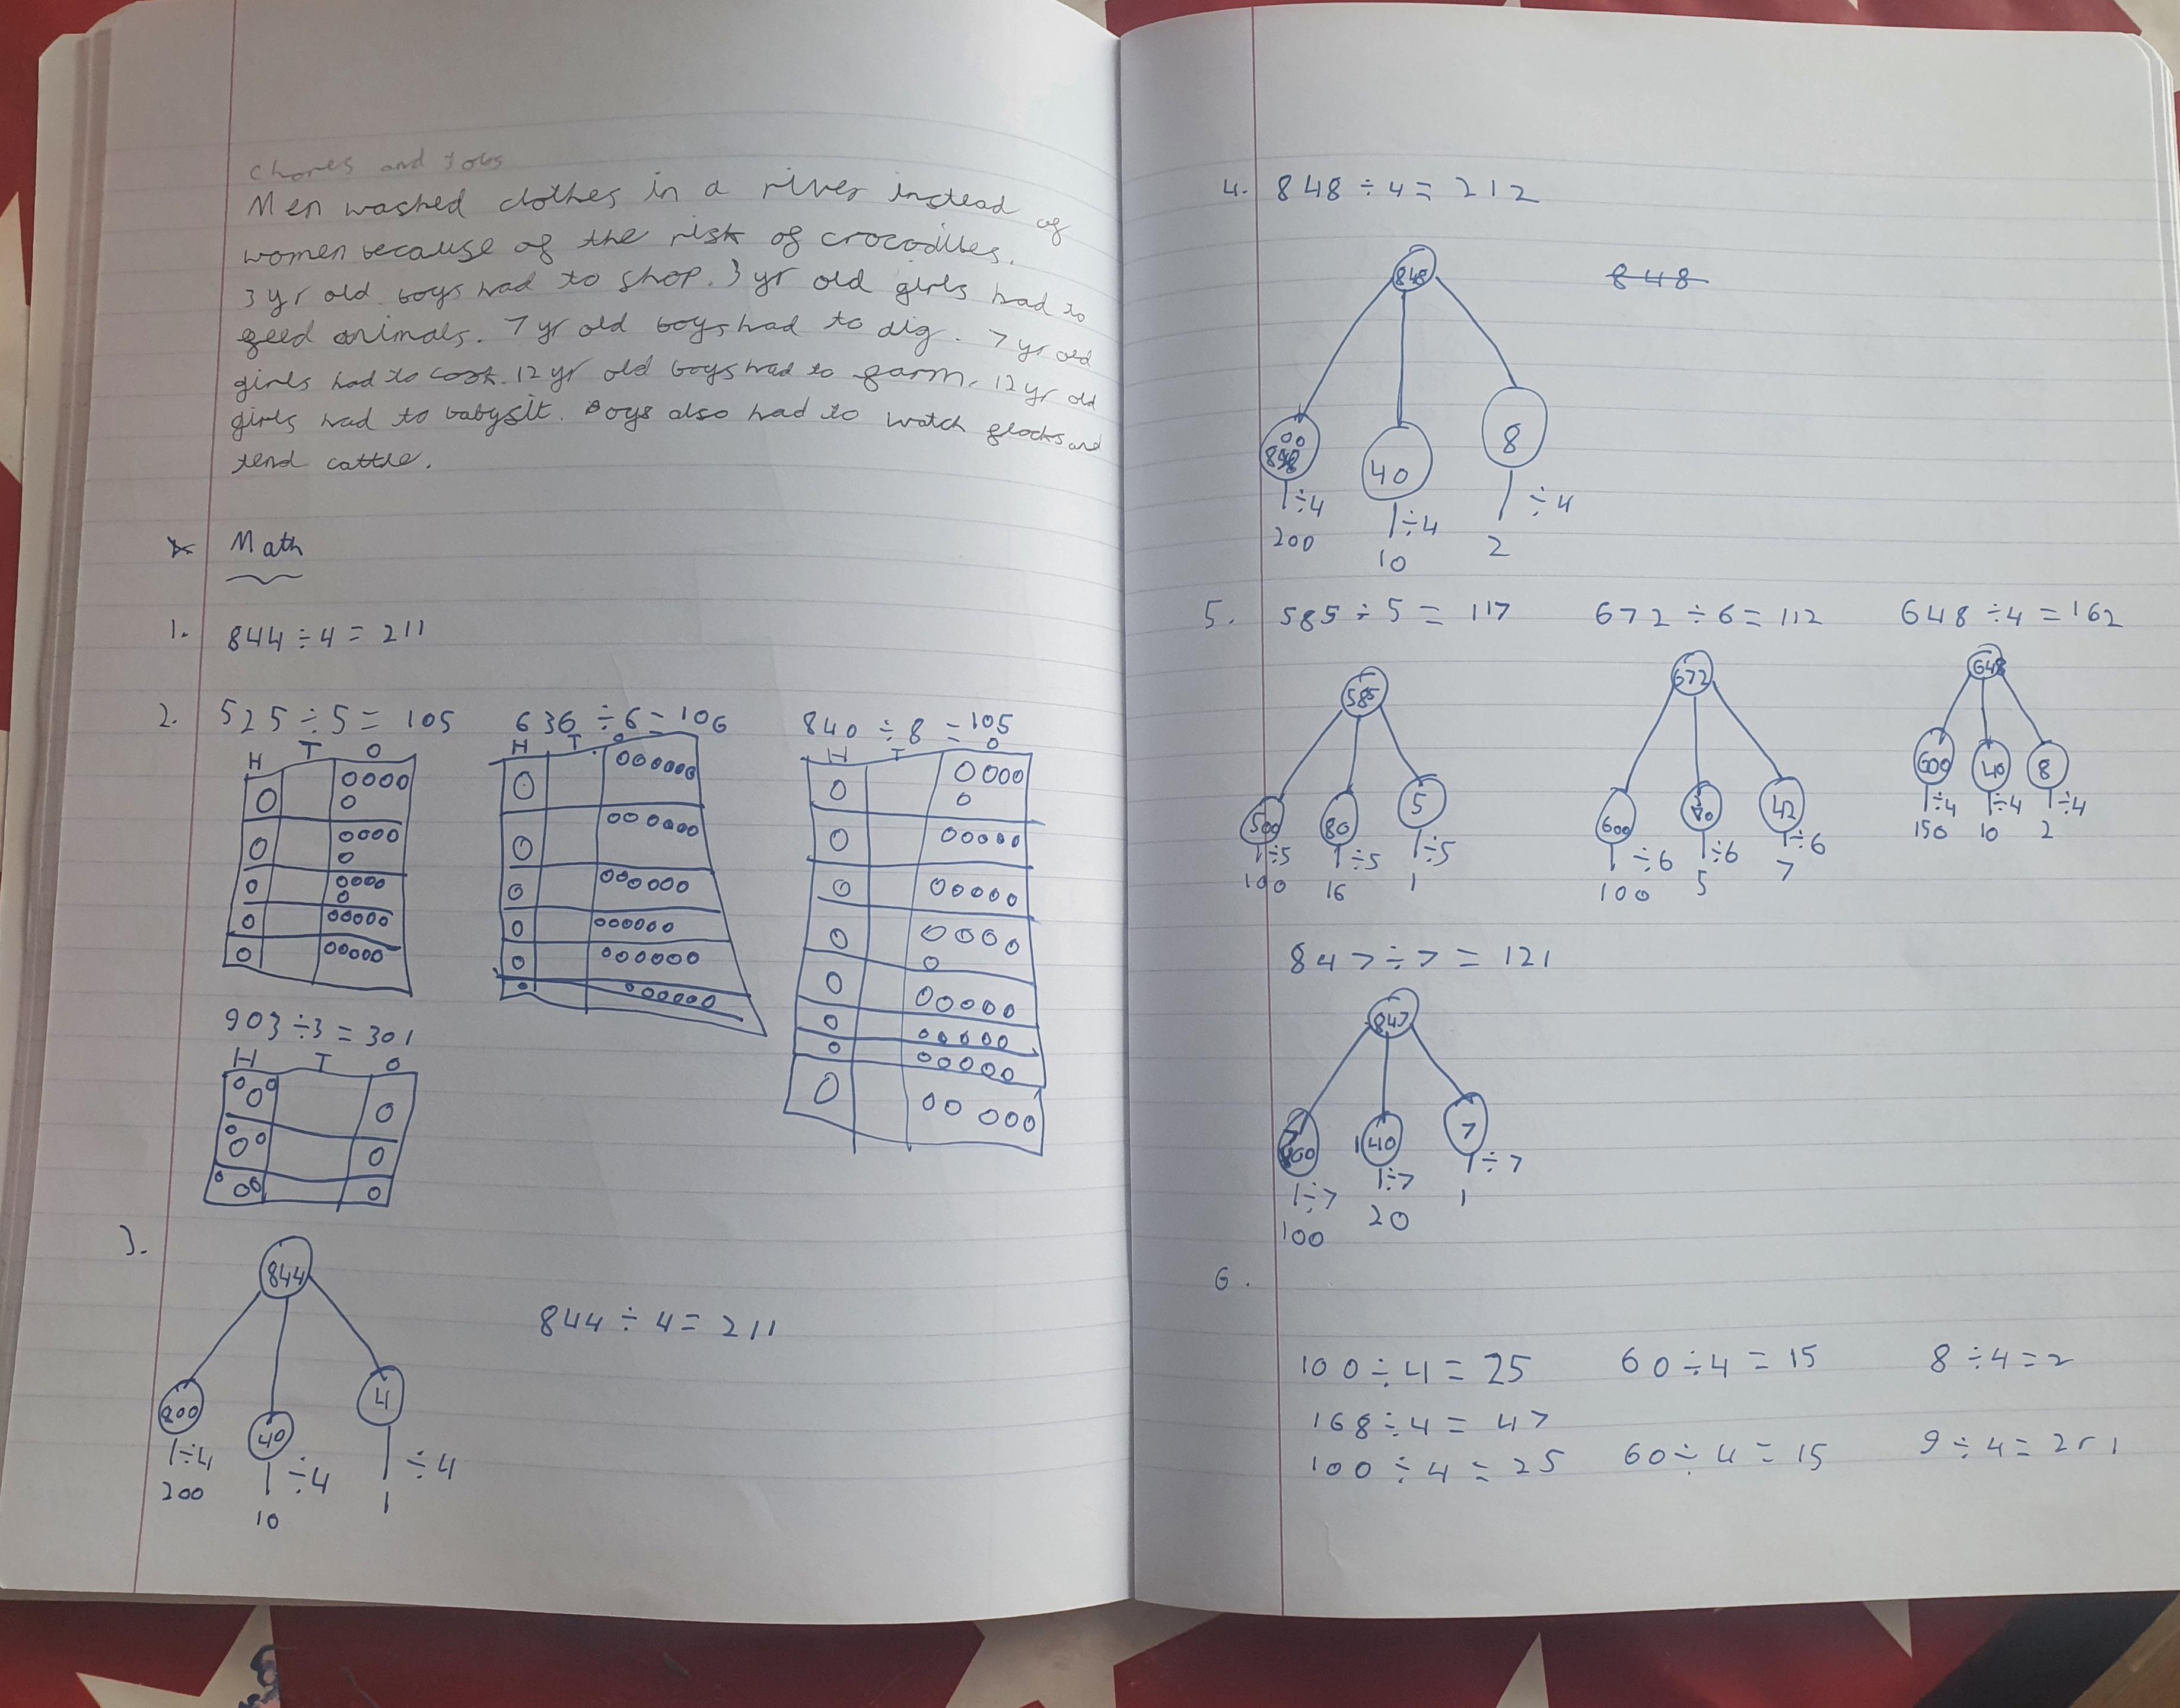 Chores and Jobs
Men washed clothes in a river instead of
women because of the risk of crocodiles.
3 yr old boys had to shop. 3 yr old girls had to
feed animals. 7 yr old boys had to dig. 7 yr old
girls had to cook. 12 yr old boys had to farm. 12 yr old
girls had to babysit. Boys also had to watch flocks and
tend cattle.
Math
1. 844 ÷ 4 = 211
2. 525 ÷ 5 = 105 636 ÷ 6 = 106 840 ÷ 8 = 105
H T O H T O H T O
903 ÷ 3 = 301
H T O
3.
844
844 ÷ 4 = 211
800 40 4
÷4 ÷4 ÷4
200 10 1
4. 848 ÷ 4 = 212
848 848
800 40 8
÷4 ÷4 ÷4
200 10 2
5. 585 ÷ 5 = 117 672 ÷ 6 = 112 648 ÷ 4 = 162
585 672 648
500 80 5 600 42 600 40 8
÷5 ÷5 ÷5 ÷6 ÷6 ÷6 ÷4 ÷4 ÷4
100 16 1 100 5 7 150 10 2
847 ÷ 7 = 121
847
700 140 7
÷7 ÷7 ÷7
100 20 1
6.
100 ÷ 4 = 25 60 ÷ 4 = 15 8 ÷ 4 = 2
168 ÷ 4 = 47
100 ÷ 4 = 25 60 ÷ 4 = 15 9 ÷ 4 = 2 r 1